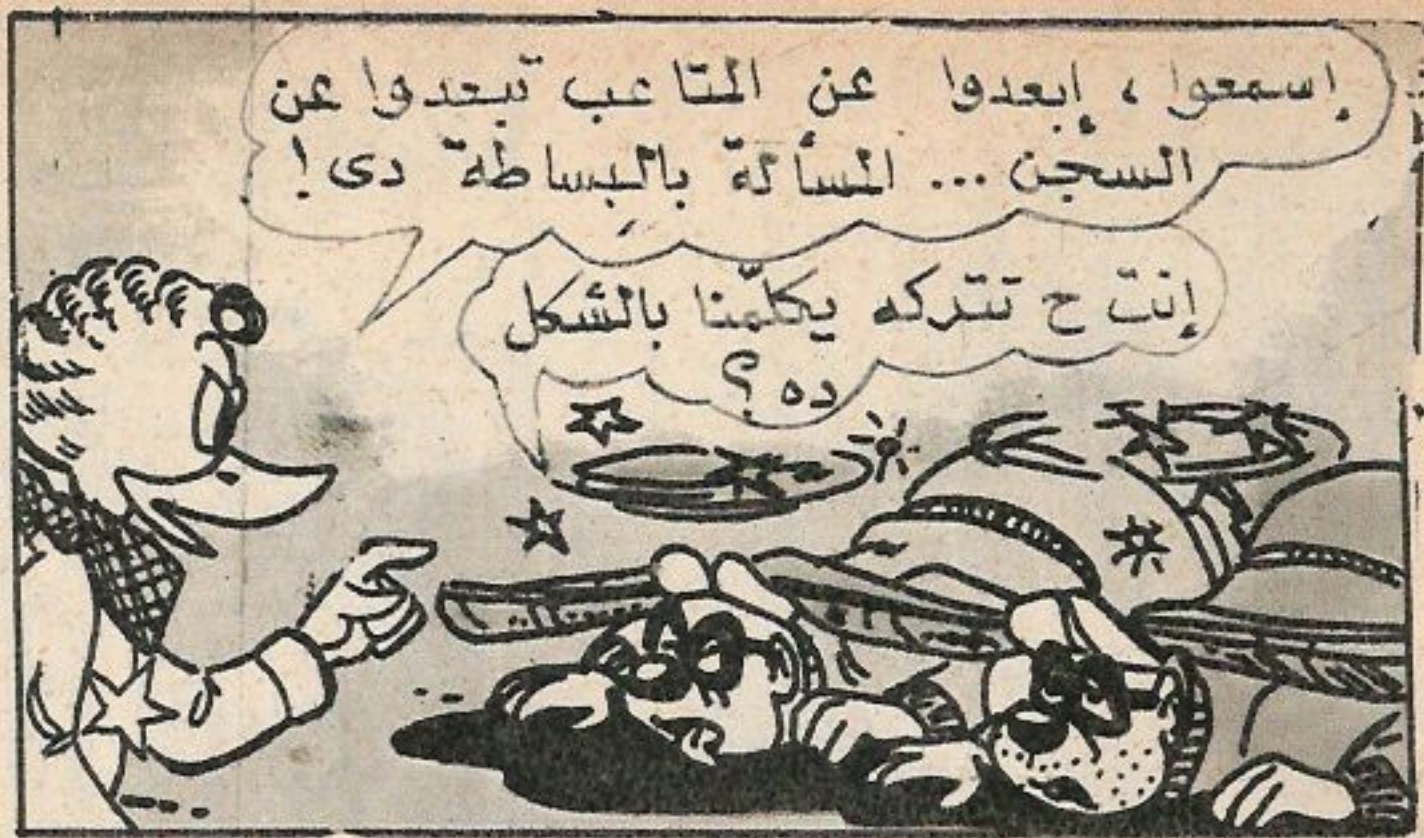 إسمعوا ، إبعدوا عن المتاعب تبعدوا عن
السجن ... المسألة بالبساطة دى !
إنت ح تتركه يكلّمنا بالشكل
ده ؟